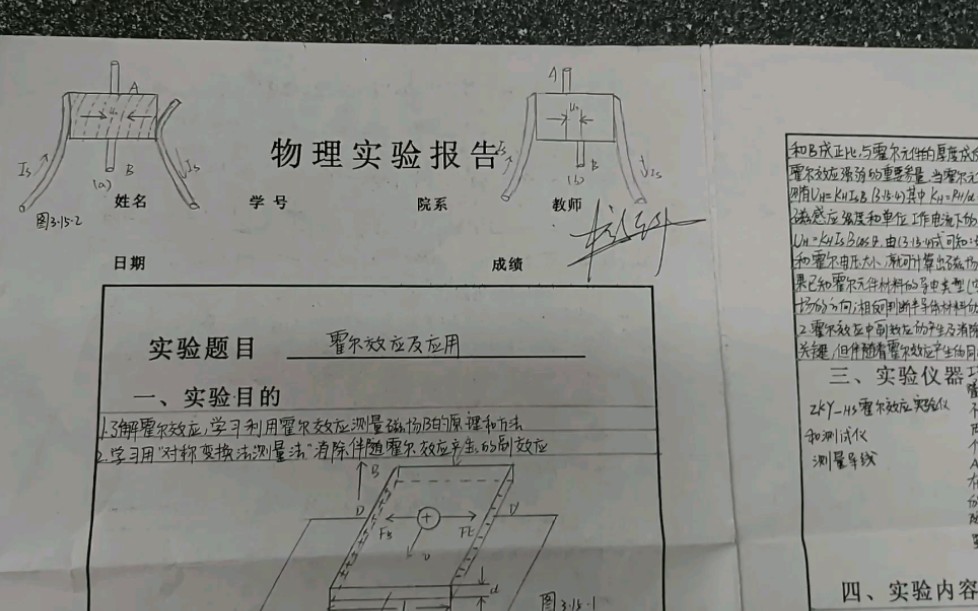 A
A
Is
B
Is
(a)
图3-15-2
Is
B
Is
(b)
物理实验报告
姓名 学号 院系 教师
日期 成绩
实验题目 霍尔效应及应用
一、实验目的
1.了解霍尔效应,学习利用霍尔效应测量磁场B的原理和方法
2.学习用"对称变换法测量法"消除伴随霍尔效应产生的副效应
B
FB
υ
d
图3-15-1
和B成正比,与霍尔元件的厚度成
霍尔效应强弱的重要参量,当霍尔元
则有UH=KHIsB (3-15-4)其中KH=RH/d
磁感应强度和单位工作电流下的
UH=KHIsBcosθ,由(3-15-4)式可知:
和霍尔电压大小,就可计算出磁场
果已知霍尔元件材料的导电类型
场的方向;相反可判断半导体材料的
2.霍尔效应中副效应的产生及消除
关键,但伴随着霍尔效应产生的
三、实验仪器
ZKY-HS霍尔效应实验仪
和测试仪
测量导线
四、实验内容